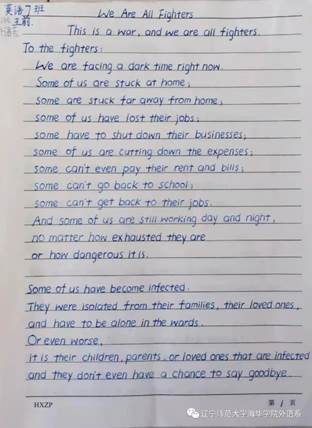 英语7班
王莉
We Are All Fighters
This is a war, and we are all fighters.
To the fighters:
We are facing a dark time right now.
Some of us are stuck at home;
some are stuck far away from home;
some of us have lost their jobs;
some have to shut down their businesses;
some of us are cutting down the expenses;
some can't even pay their rent and bills;
some can't go back to school;
some can't get back to their jobs.
And some of us are still working day and night,
no matter how exhausted they are
or how dangerous it is.
Some of us have become infected.
They were isolated from their families, their loved ones,
and have to be alone in the wards.
Or even worse,
it is their children, parents, or loved ones that are infected
and they don't even have a chance to say goodbye.
HXZP
第 1 页
辽宁师范大学海华学院外语系